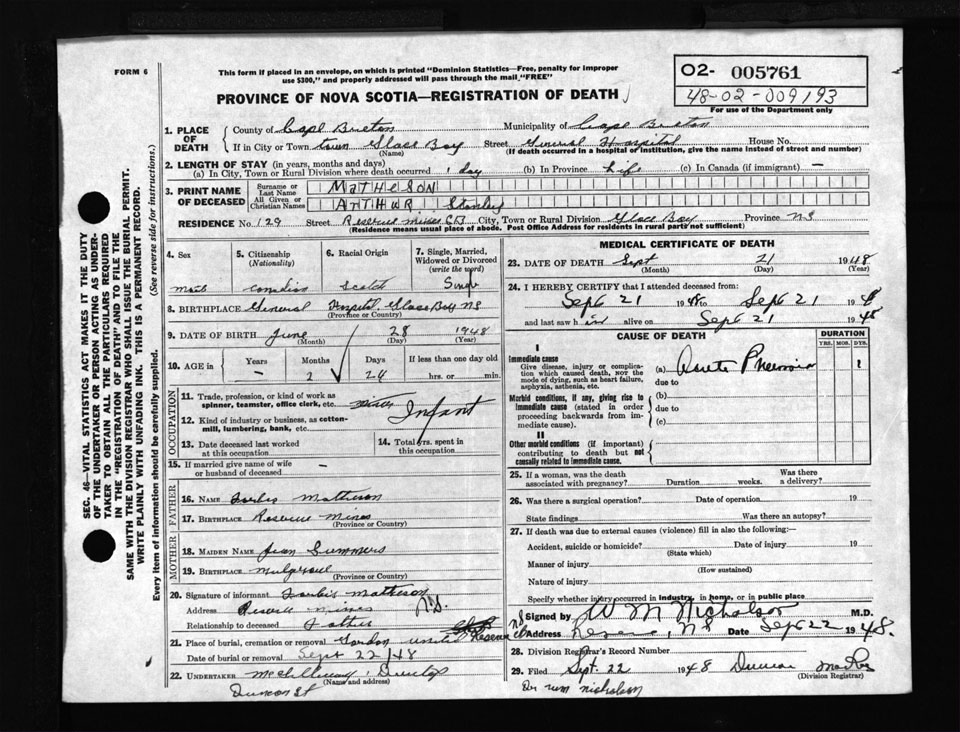 FORM 6
This form if placed in an envelope, on which is printed "Dominion Statistics—Free, penalty for improper
use $300," and properly addressed will pass through the mail "FREE"
O2- 005761
48-02-009193
For use of the Department only
PROVINCE OF NOVA SCOTIA—REGISTRATION OF DEATH
1. PLACE OF DEATH
County of Cape Breton Municipality of Cape Breton
If in City or Town town Glace Bay Street General Hospital House No.
(Name) (If death occurred in a hospital or institution, give the name instead of street and number)
2. LENGTH OF STAY (in years, months and days)
(a) In City, Town or Rural Division where death occurred 1 day (b) In Province Life (c) In Canada (if immigrant) —
3. PRINT NAME OF DECEASED
Surname or Last Name MATHESON
All Given or Christian Names ARTHUR Stanley
RESIDENCE No. 129 Street Reserve Mines CB City, Town or Rural Division Glace Bay Province NS
(Residence means usual place of abode. Post Office Address for residents in rural parts not sufficient)
4. Sex
Male
5. Citizenship (Nationality)
Canadian
6. Racial Origin
Scotch
7. Single, Married, Widowed or Divorced (write the word)
Single
8. BIRTHPLACE General Hospital Glace Bay NS
(Province or Country)
9. DATE OF BIRTH June 28 1948
(Month) (Day) (Year)
10. AGE in
Years Months Days If less than one day old
— 2 24 hrs. or min.
OCCUPATION
11. Trade, profession, or kind of work as
spinner, teamster, office clerk, etc.
Infant
12. Kind of industry or business, as cotton-
mill, lumbering, bank, etc.
13. Date deceased last worked
at this occupation
14. Total yrs. spent in
this occupation
15. If married give name of wife
or husband of deceased —
FATHER
16. NAME Matheson
17. BIRTHPLACE Reserve Mines
(Province or Country)
MOTHER
18. MAIDEN NAME Jean Summers
19. BIRTHPLACE Mulgrave
(Province or Country)
20. Signature of informant Matheson
Address Reserve Mines N.S.
Relationship to deceased Father
21. Place of burial, cremation or removal Gordon United Reserve
Date of burial or removal Sept 22/48
22. UNDERTAKER Dunlop
(Name and address)
MEDICAL CERTIFICATE OF DEATH
23. DATE OF DEATH Sept 21 1948
(Month) (Day) (Year)
24. I HEREBY CERTIFY that I attended deceased from:
Sept 21 1948 to Sept 21 1948
and last saw him alive on Sept 21 1948
CAUSE OF DEATH
DURATION
YRS. MOS. DYS.
I
Immediate cause
Give disease, injury or complica-
tion which caused death, NOT the
mode of dying, such as heart failure,
asphyxia, asthenia, etc.
(a) Acute Pneumonia 1
due to
Morbid conditions, if any, giving rise to
immediate cause (stated in order
proceeding backwards from im-
mediate cause).
(b)
due to
(c)
II
Other morbid conditions (if important)
contributing to death but not
causally related to immediate cause.
25. If a woman, was the death
associated with pregnancy? Duration weeks. Was there
a delivery?
26. Was there a surgical operation? Date of operation 19
State findings Was there an autopsy?
27. If death was due to external causes (violence) fill in also the following:—
Accident, suicide or homicide? Date of injury 19
(State which)
Manner of injury
(How sustained)
Nature of injury
Specify whether injury occurred in industry, in home, or in public place
Signed by W M Nicholson M.D.
Address Reserve, NS Date Sept 22 1948.
28. Division Registrar's Record Number
29. Filed Sept. 22 1948 Duncan
(Division Registrar)
Dr Wm Nicholson
SEC. 46—VITAL STATISTICS ACT MAKES IT THE DUTY
OF THE UNDERTAKER OR PERSON ACTING AS UNDER-
TAKER TO OBTAIN ALL THE PARTICULARS REQUIRED
IN THE "REGISTRATION OF DEATH" AND TO FILE THE
SAME WITH THE DIVISION REGISTRAR WHO SHALL ISSUE THE BURIAL PERMIT.
WRITE PLAINLY WITH UNFADING INK. THIS IS A PERMANENT RECORD.
Every item of information should be carefully supplied. (See reverse side for instructions.)